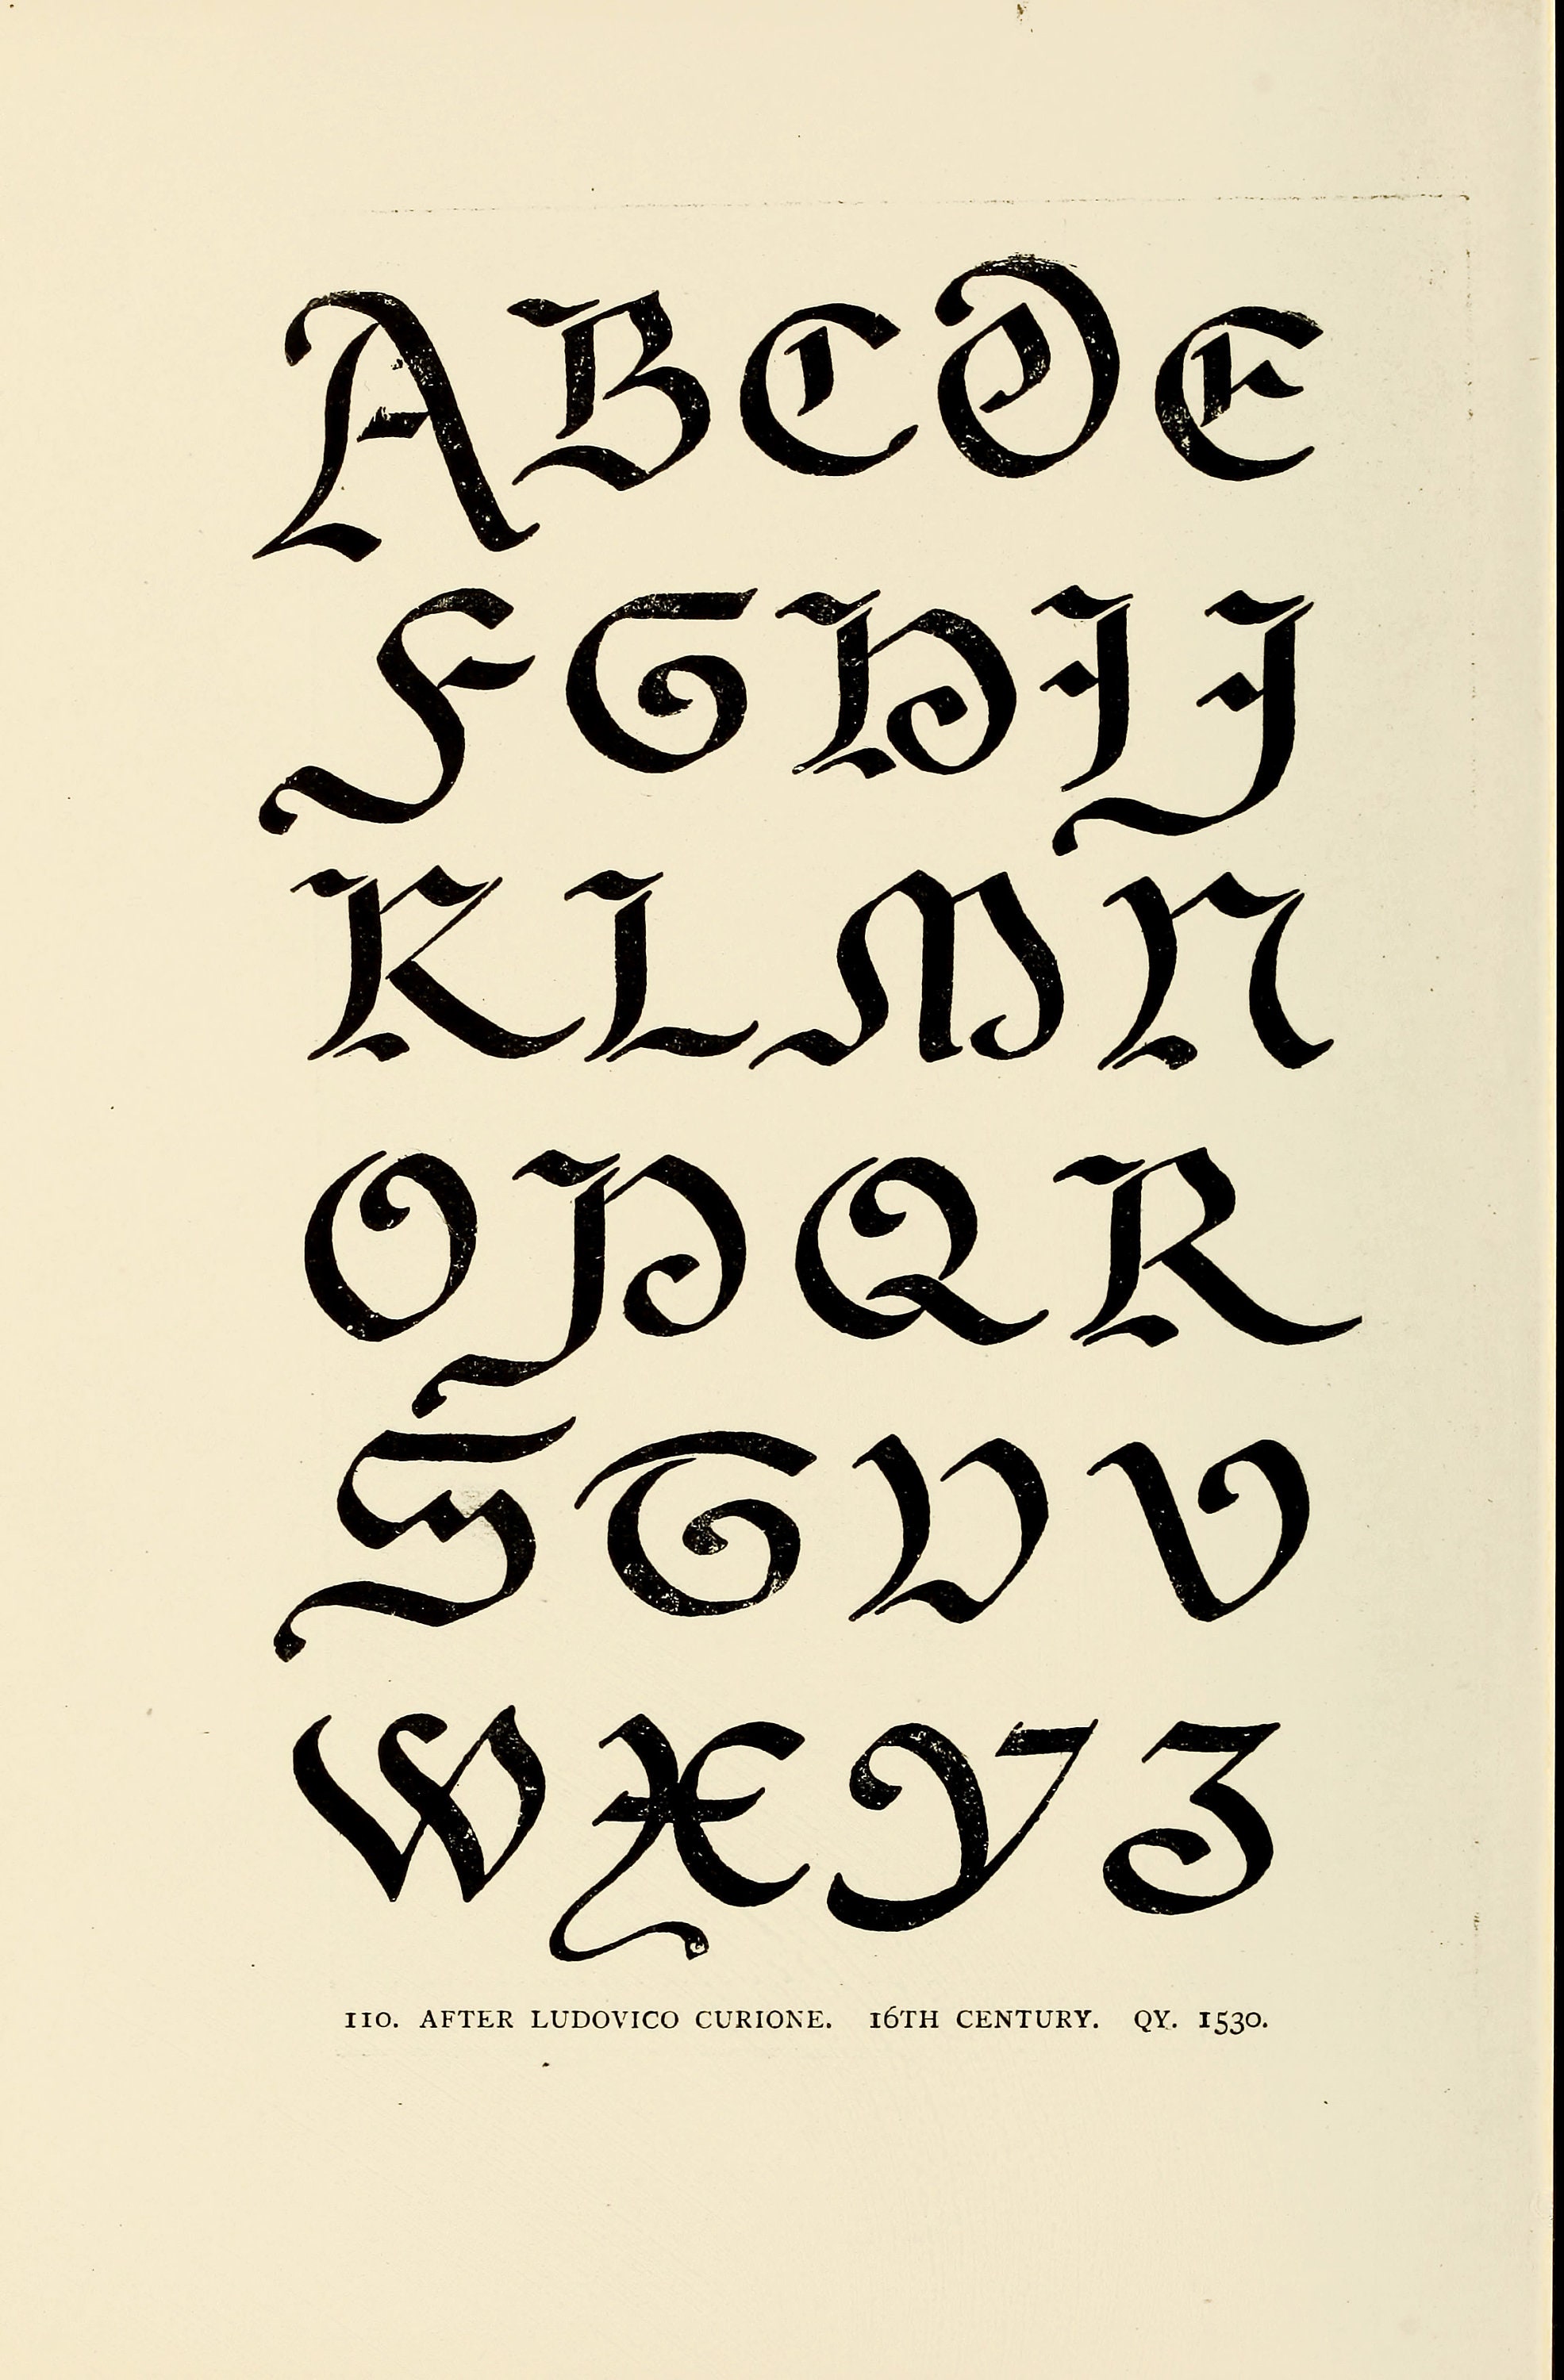 A B C D E
F G H I J
K L M N
O P Q R
S T U V
W X Y Z
110. AFTER LUDOVICO CURIONE. 16TH CENTURY. QY. 1530.